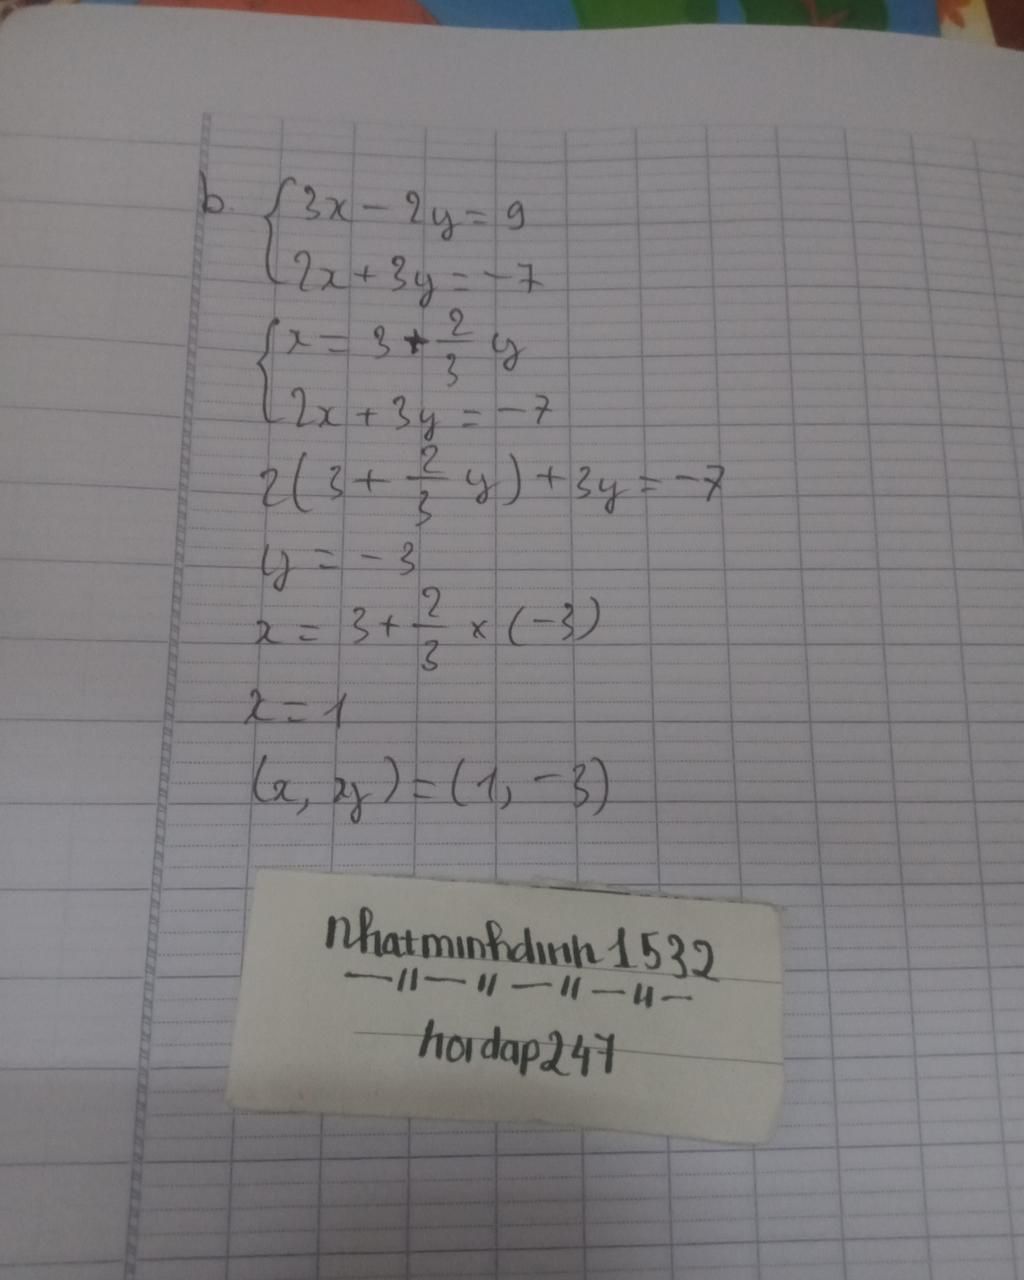 b. { 3x - 2y = 9
2x + 3y = -7
{ x = 3 + 2/3 y
2x + 3y = -7
2(3 + 2/3 y) + 3y = -7
y = -3
x = 3 + 2/3 × (-3)
x = 1
(x, y) = (1, -3)
nhatminhdinh1532
—//—//—//—//—
hoidap247